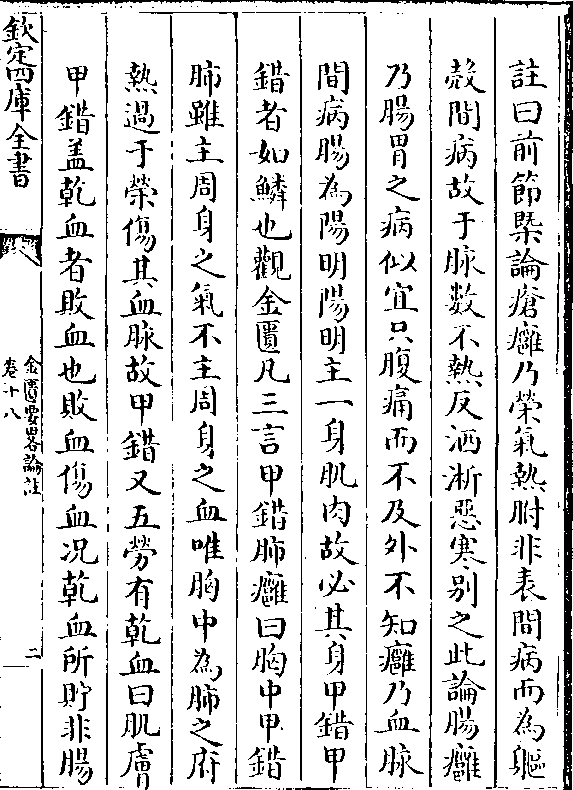 註曰前節槩論瘡癰乃榮氣熱胕非表間病而為軀
殼間病故于脉數不熱反洒淅惡寒别之此論腸癰
乃腸胃之病似宜只腹痛而不及外不知癰乃血脉
間病腸為陽明陽明主一身肌肉故必其身甲錯甲
錯者如鱗也觀金匱凡三言甲錯肺癰曰胸中甲錯
肺雖主周身之氣不主周身之血唯胸中為肺之府
熱過于榮傷其血脉故甲錯又五勞有乾血曰肌膚
甲錯盖乾血者敗血也敗血傷血况乾血所貯非腸
欽定四庫全書
金匱要畧論註
卷十八
二